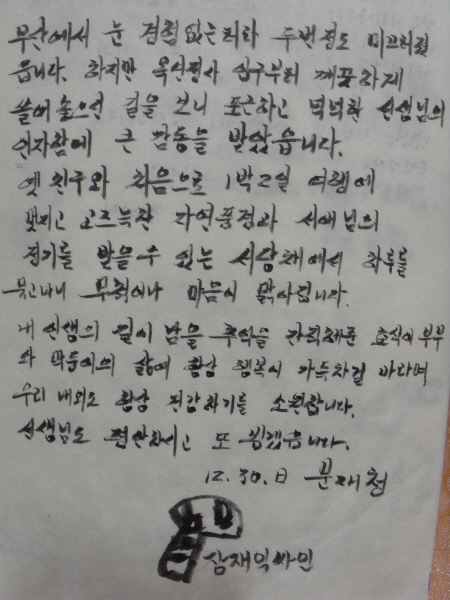 부산에서 눈 경험 없는지라 두번정도 미끄러졌
읍니다. 하지만 옥산정사 입구부터 깨끗하게
쓸어 놓으신 길을 보니 포근하고 넉넉한 선생님의
인자함에 큰 감동을 받았읍니다.
옛 친구와 처음으로 1박2일 여행에
멋지고 고즈늑한 자연풍경과 서애님의
정기를 받을수 있는 서당채에서 하루를
묵고나니 무척이나 마음이 맑아집니다.
내 인생의 길이 남을 추억을 간직해준 효식이 부부
와 막둥이의 삶에 항상 행복이 가득차길 바라며
우리 내외도 항상 건강하기를 소원합니다.
선생님도 편안하시고 또 뵙겠읍니다.
12.30.日 문재철
삼재익싸인